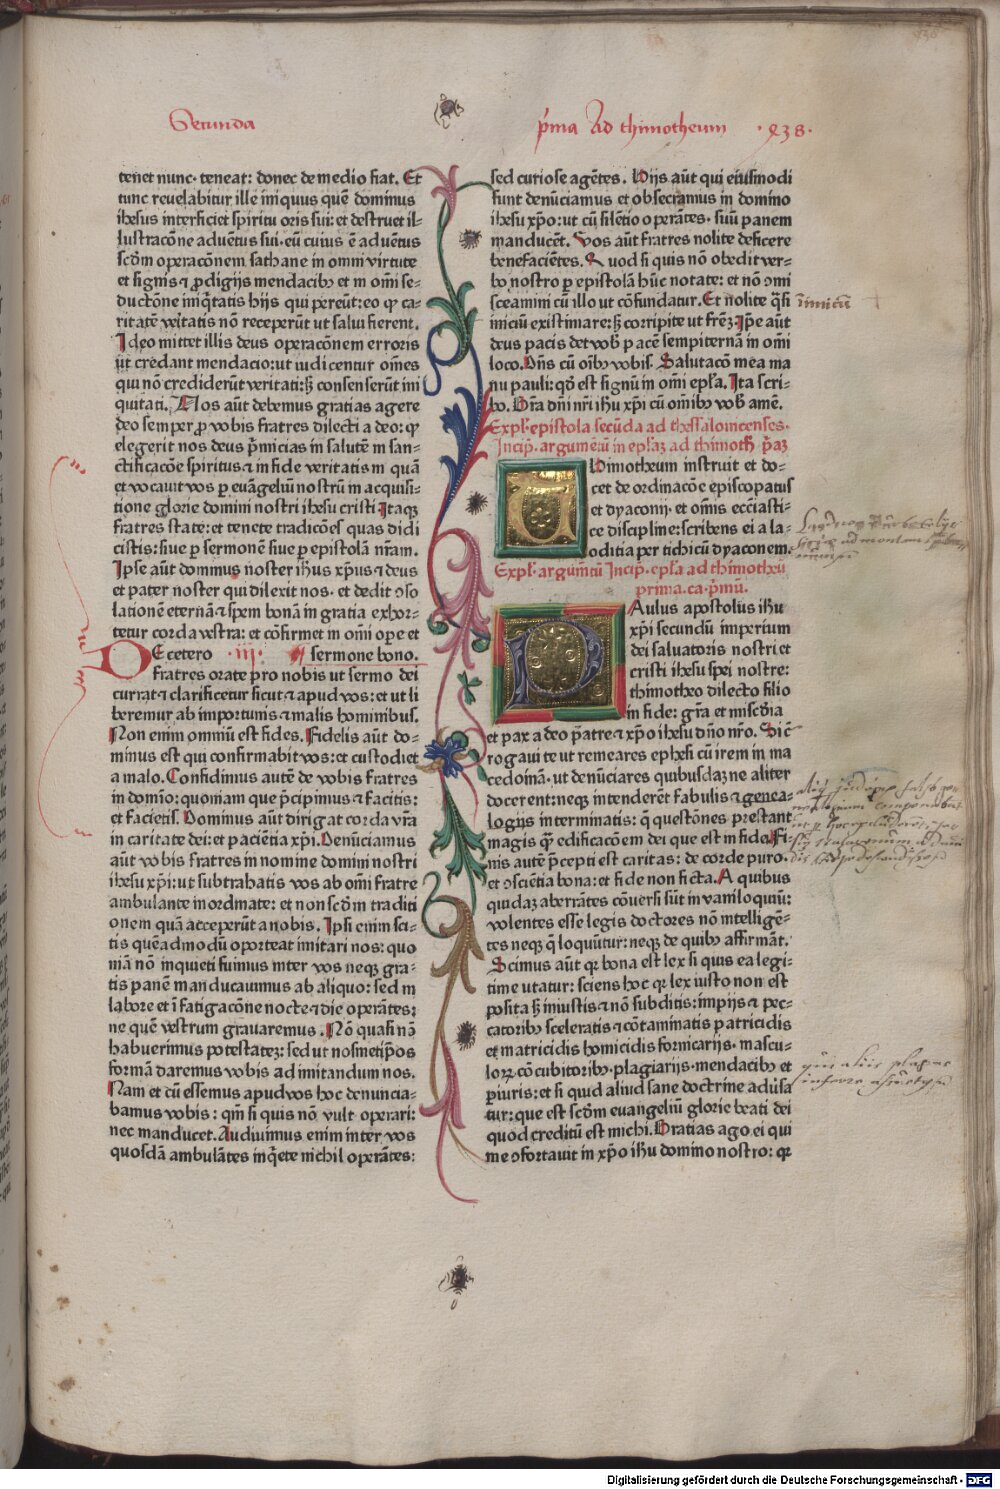 Secunda
p̄ma Ad thimotheum ·238·
tenet nunc· teneat: donec de medio fiat. Et
tunc reuelabitur ille iniquus quē dominus
ihesus interficiet spiritu oris sui: et destruet il-
lustracōne aduētus sui· eū cuius ē aduētus
scd̄m operacōnem sathane in omni virtute
et signis ⁊ ꝓdigijs mendacibꝫ et in om̄i se-
ductōne iniq̄tatis hijs qui pereūt: eo ꝙ ca-
ritatē veritatis nō receperūt ut salui fierent.
Ideo mittet illis deus operacōnem erroris
ut credant mendacio: ut iudicentur om̄es
qui nō crediderūt veritati: sꝫ consenserūt ini
quitati. Nos aūt debemus gratias agere
deo semper ꝓ vobis fratres dilecti a deo: ꝙ
elegerit nos deus p̄micias in salutē in san-
ctificacōe spiritus ⁊ in fide veritatis in quā
et vocauit vos ꝑ euāgeliū nostrū in acquisi-
tione glorie domini nostri ihesu cristi Itaqꝫ
fratres state: et tenete tradicōes quas didi
cistis: siue ꝑ sermonē siue ꝑ epistolā nr̄am.
Ipse aūt dominus noster ih̄us xp̄us ⁊ deus
et pater noster qui dilexit nos· et dedit ↄso
lationē eternā ⁊ spem bonā in gratia exhor-
tetur corda vestra: et cōfirmet in om̄i ope et
DE cetero ·iij· sermone bono.
fratres orate pro nobis ut sermo dei
currat ⁊ clarificetur sicut ⁊ apud vos: et ut li
beremur ab importunis ⁊ malis hominibus.
Non enim omniū est fides. Fidelis aūt do-
minus est qui confirmabit vos: et custodiet
a malo. Confidimus autē de vobis fratres
in domīo: quoniam que p̄cipimus ⁊ facitis:
et facietis. Dominus aūt dirigat corda vr̄a
in caritate dei: et paciētia xp̄i. Denūciamus
aūt vobis fratres in nomine domini nostri
ihesu xp̄i: ut subtrahatis vos ab om̄i fratre
ambulante inordinate: et non scd̄m traditi
onem quā acceperūt a nobis. Ipsi enim sci-
tis quēadmodū oporteat imitari nos: quo
niā nō inquieti fuimus inter vos neqꝫ gra-
tis panē manducauimus ab aliquo: sed in
labore et ī fatigacōne nocte ⁊ die operātes:
ne quē vestrum grauaremus. Nō quasi nō
habuerimus potestatē: sed ut nosmetip̄os
formā daremus vobis ad imitandum nos.
Nam et cū essemus apud vos hoc denuncia-
bamus vobis: qm̄ si quis nō vult operari:
nec manducet. Audiuimus enim inter vos
quosdā ambulātes inq̄ete nichil operātes:
sed curiose agētes. Hijs aūt qui eiusmodi
sunt denūciamus et obsecramus in domino
ihesu xp̄o: ut cū silētio operātes· suū panem
manducēt. Vos aūt fratres nolite deficere
benefaciētes. Quod si quis nō obedit ver-
bo nostro ꝑ epistolā hūc notate: et nō ↄmi
sceamini cū illo ut cōfundatur. Et nolite q̄si
inimicū
inimicū existimare: sꝫ corripite ut frēꝫ. Ip̄e aūt
deus pacis det vob̄ pacē sempiternā in om̄i
loco. Dn̄s cū oībꝫ vobis. Salutacō mea ma
nu pauli: qd̄ est signū in om̄i ep̄la. Ita scri-
bo. Gr̄a dn̄i nr̄i ih̄u xp̄i cū om̄ibꝫ vob̄ amē.
Expl̄· epistola secūda ad thessalonicenses.
Incip̄· argumētū in ep̄laꝫ ad thimoth̄ p̄aꝫ
Timotheum instruit et do-
cet de ordinacōe episcopatus
et dyaconij· et om̄is ecc̄iasti-
ce discipline: scribens ei a la-
oditia per tichicū dyaconem.
Expl̄· argum̄tū Incip̄· ep̄la ad thimotheū
prima. ca· p̄mū.
PAulus apostolus ih̄u
xp̄i secundū imperium
dei saluatoris nostri et
cristi ihesu spei nostre:
thimotheo dilecto filio
in fide: gr̄a et mis̄cdia
et pax a deo p̄atre ⁊ xp̄o ihesu dn̄o nr̄o. Sic̄
rogaui te ut remeares ephesi cū irem in ma
cedoniā· ut denūciares quibusdaꝫ ne aliter
docerent: neqꝫ intenderēt fabulis ⁊ genea-
logijs interminatis: q̄ questōnes prestant
magis q̄ edificacōem dei que est in fide. Fi-
nis autē p̄cepti est caritas: de corde puro·
et ↄsciētia bona: et fide non ficta. A quibus
quidaꝫ aberrātes cōuersi sūt in vaniloquiū:
volentes esse legis doctores nō intelligē-
tes neqꝫ q̄ loquūtur: neqꝫ de quibꝫ affirmāt.
Scimus aūt qꝛ bona est lex si quis ea legi-
time utatur: sciens hoc qꝛ lex iusto non est
posita sꝫ iniustis ⁊ nō subditis: impijs ⁊ pec-
catoribꝫ sceleratis ⁊ cōtaminatis patricidis
et matricidis homicidis fornicarijs· mascu-
loꝝ cōcubitoribꝫ· plagiarijs· mendacibꝫ et
ꝑiuris: et si quid aliud sane doctrine aduersa
tur: que est scd̄m euangeliū glorie beati dei
quod creditū est michi. Gratias ago ei qui
me ↄfortauit in xp̄o ih̄u domino nostro: qꝛ
Digitalisierung gefördert durch die Deutsche Forschungsgemeinschaft - DFG